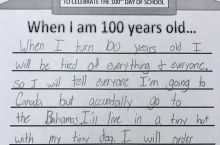 TO CELEBRATE THE 100th DAY OF SCHOOL
When I am 100 years old...
When I turn 100 years old I
will be tired of everything & everyone,
so I will tell everyone I'm going to
Canada but accountally go to
the Bahamas. I'll live in a tiny hut
with my tiny dog. I will order